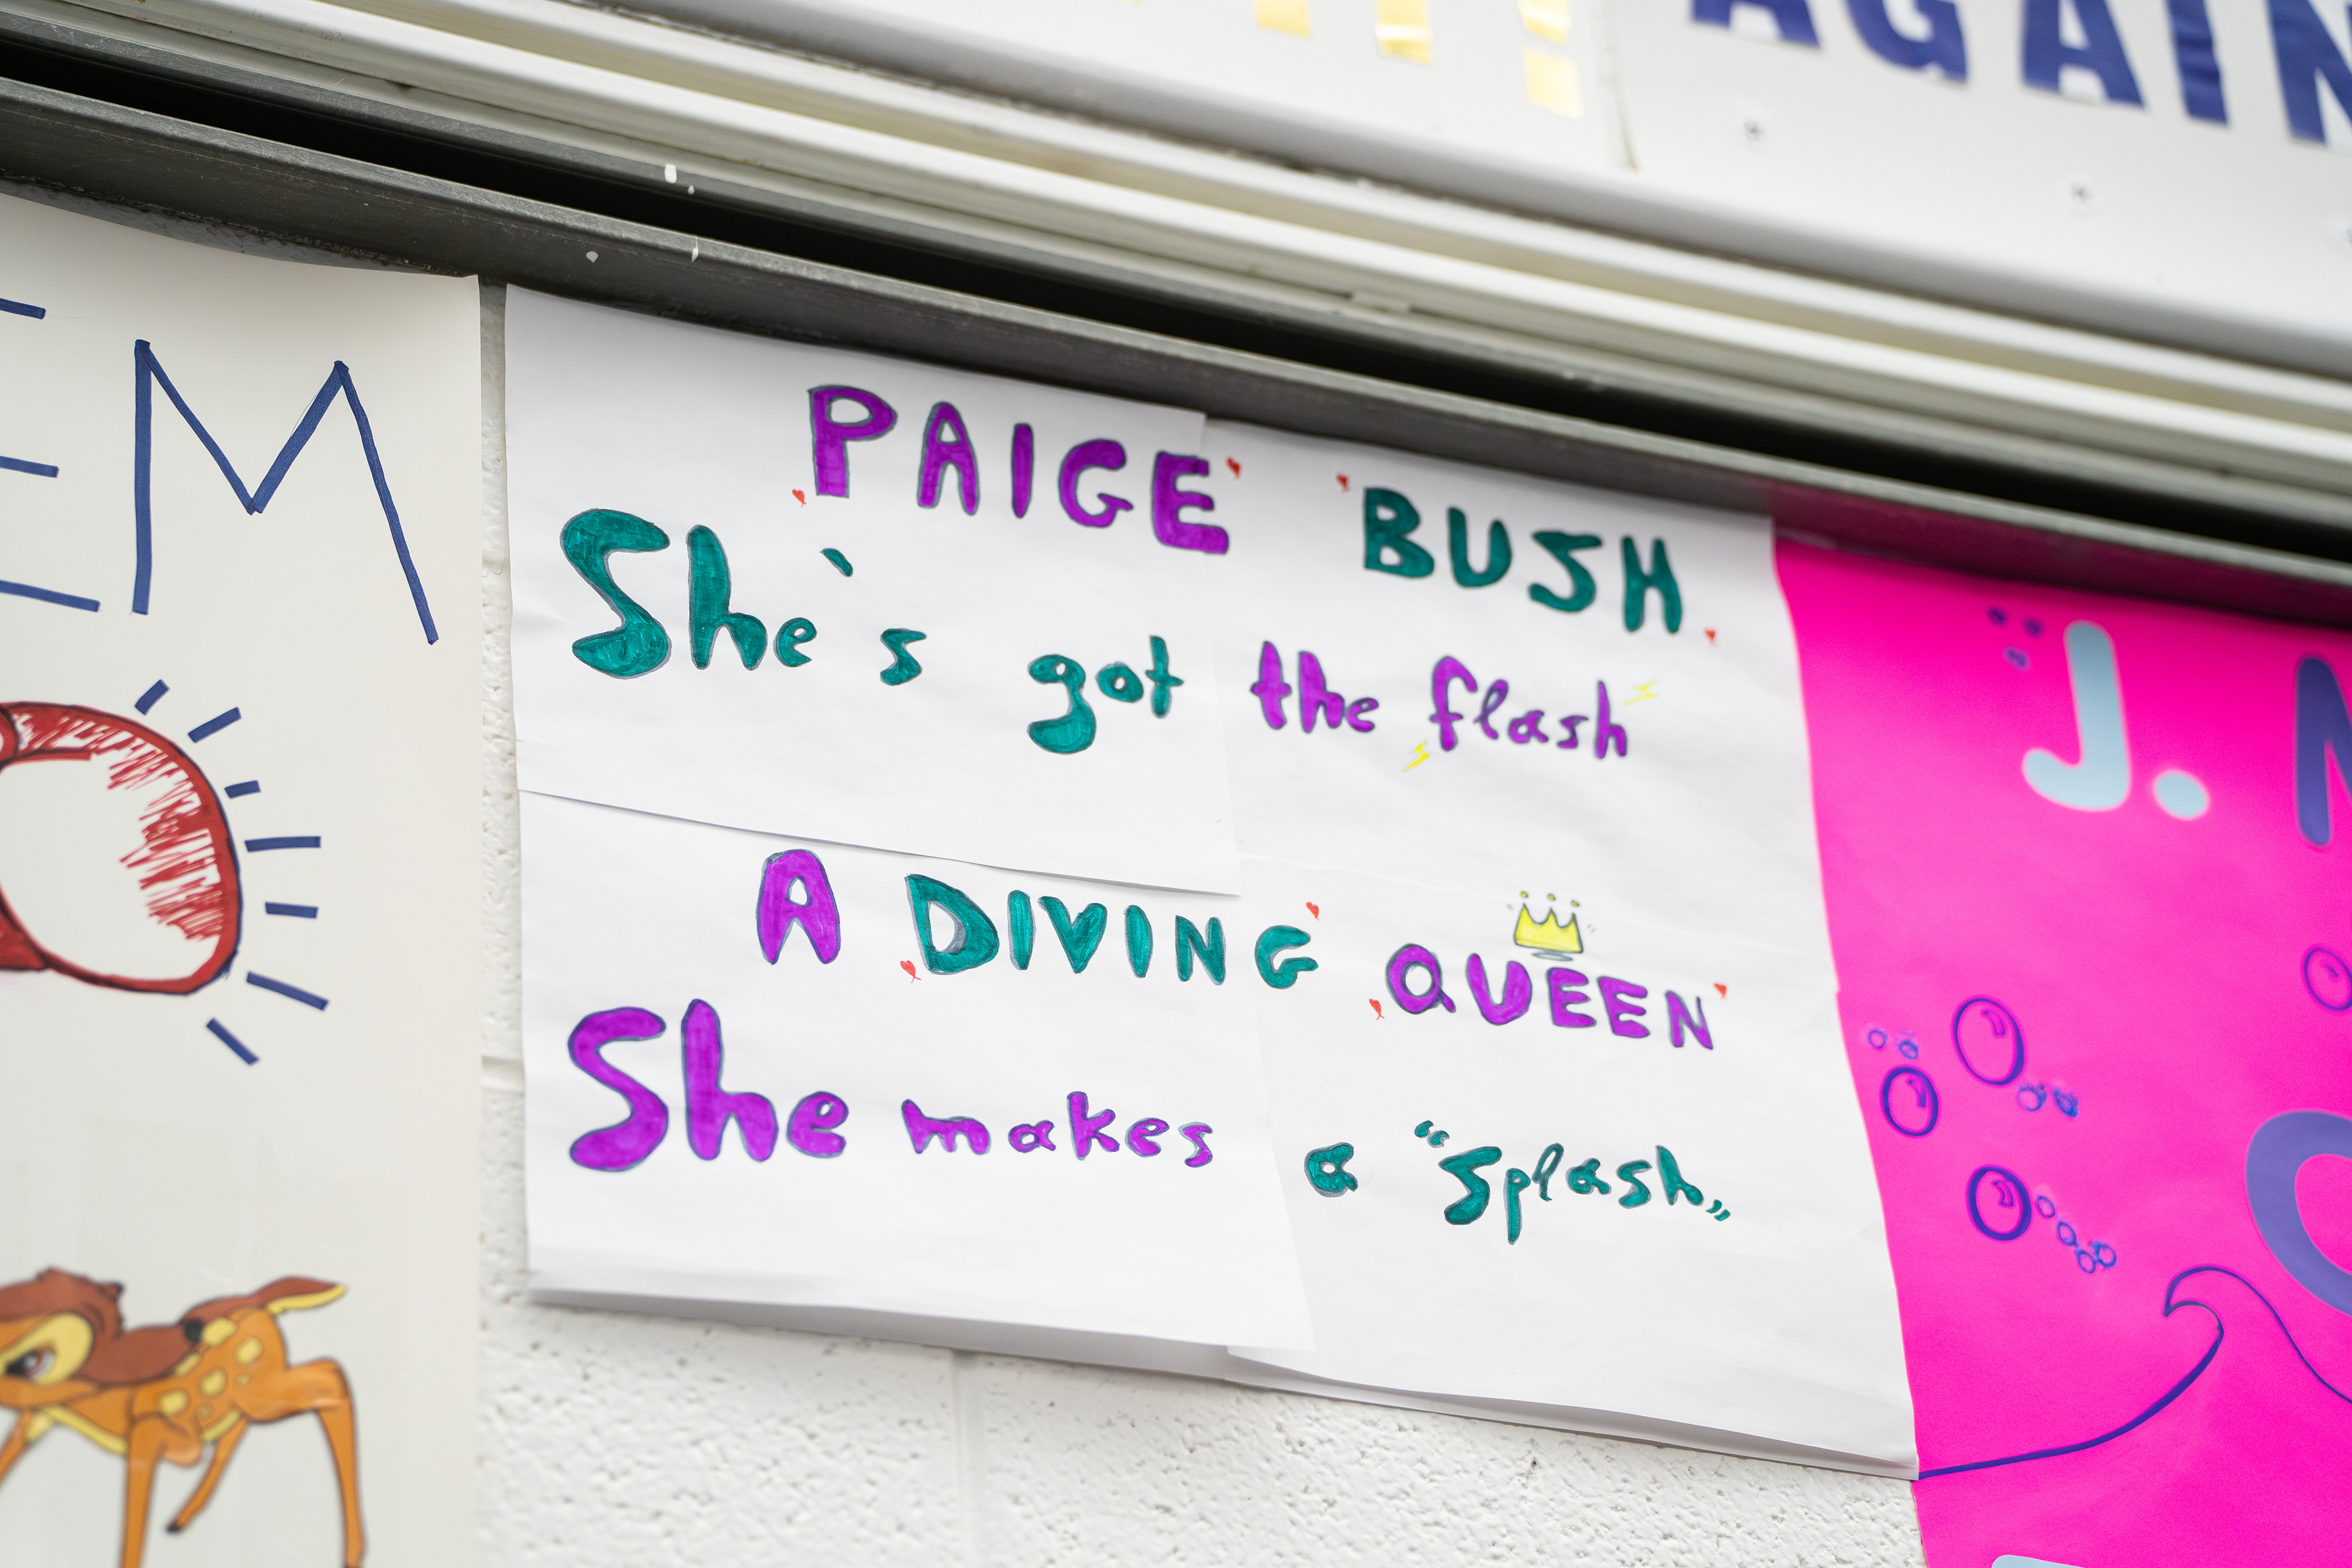 AGAIN
EM
PAIGE BUSH
She's got the flash
A DIVING QUEEN
She makes a "Splash"
J.